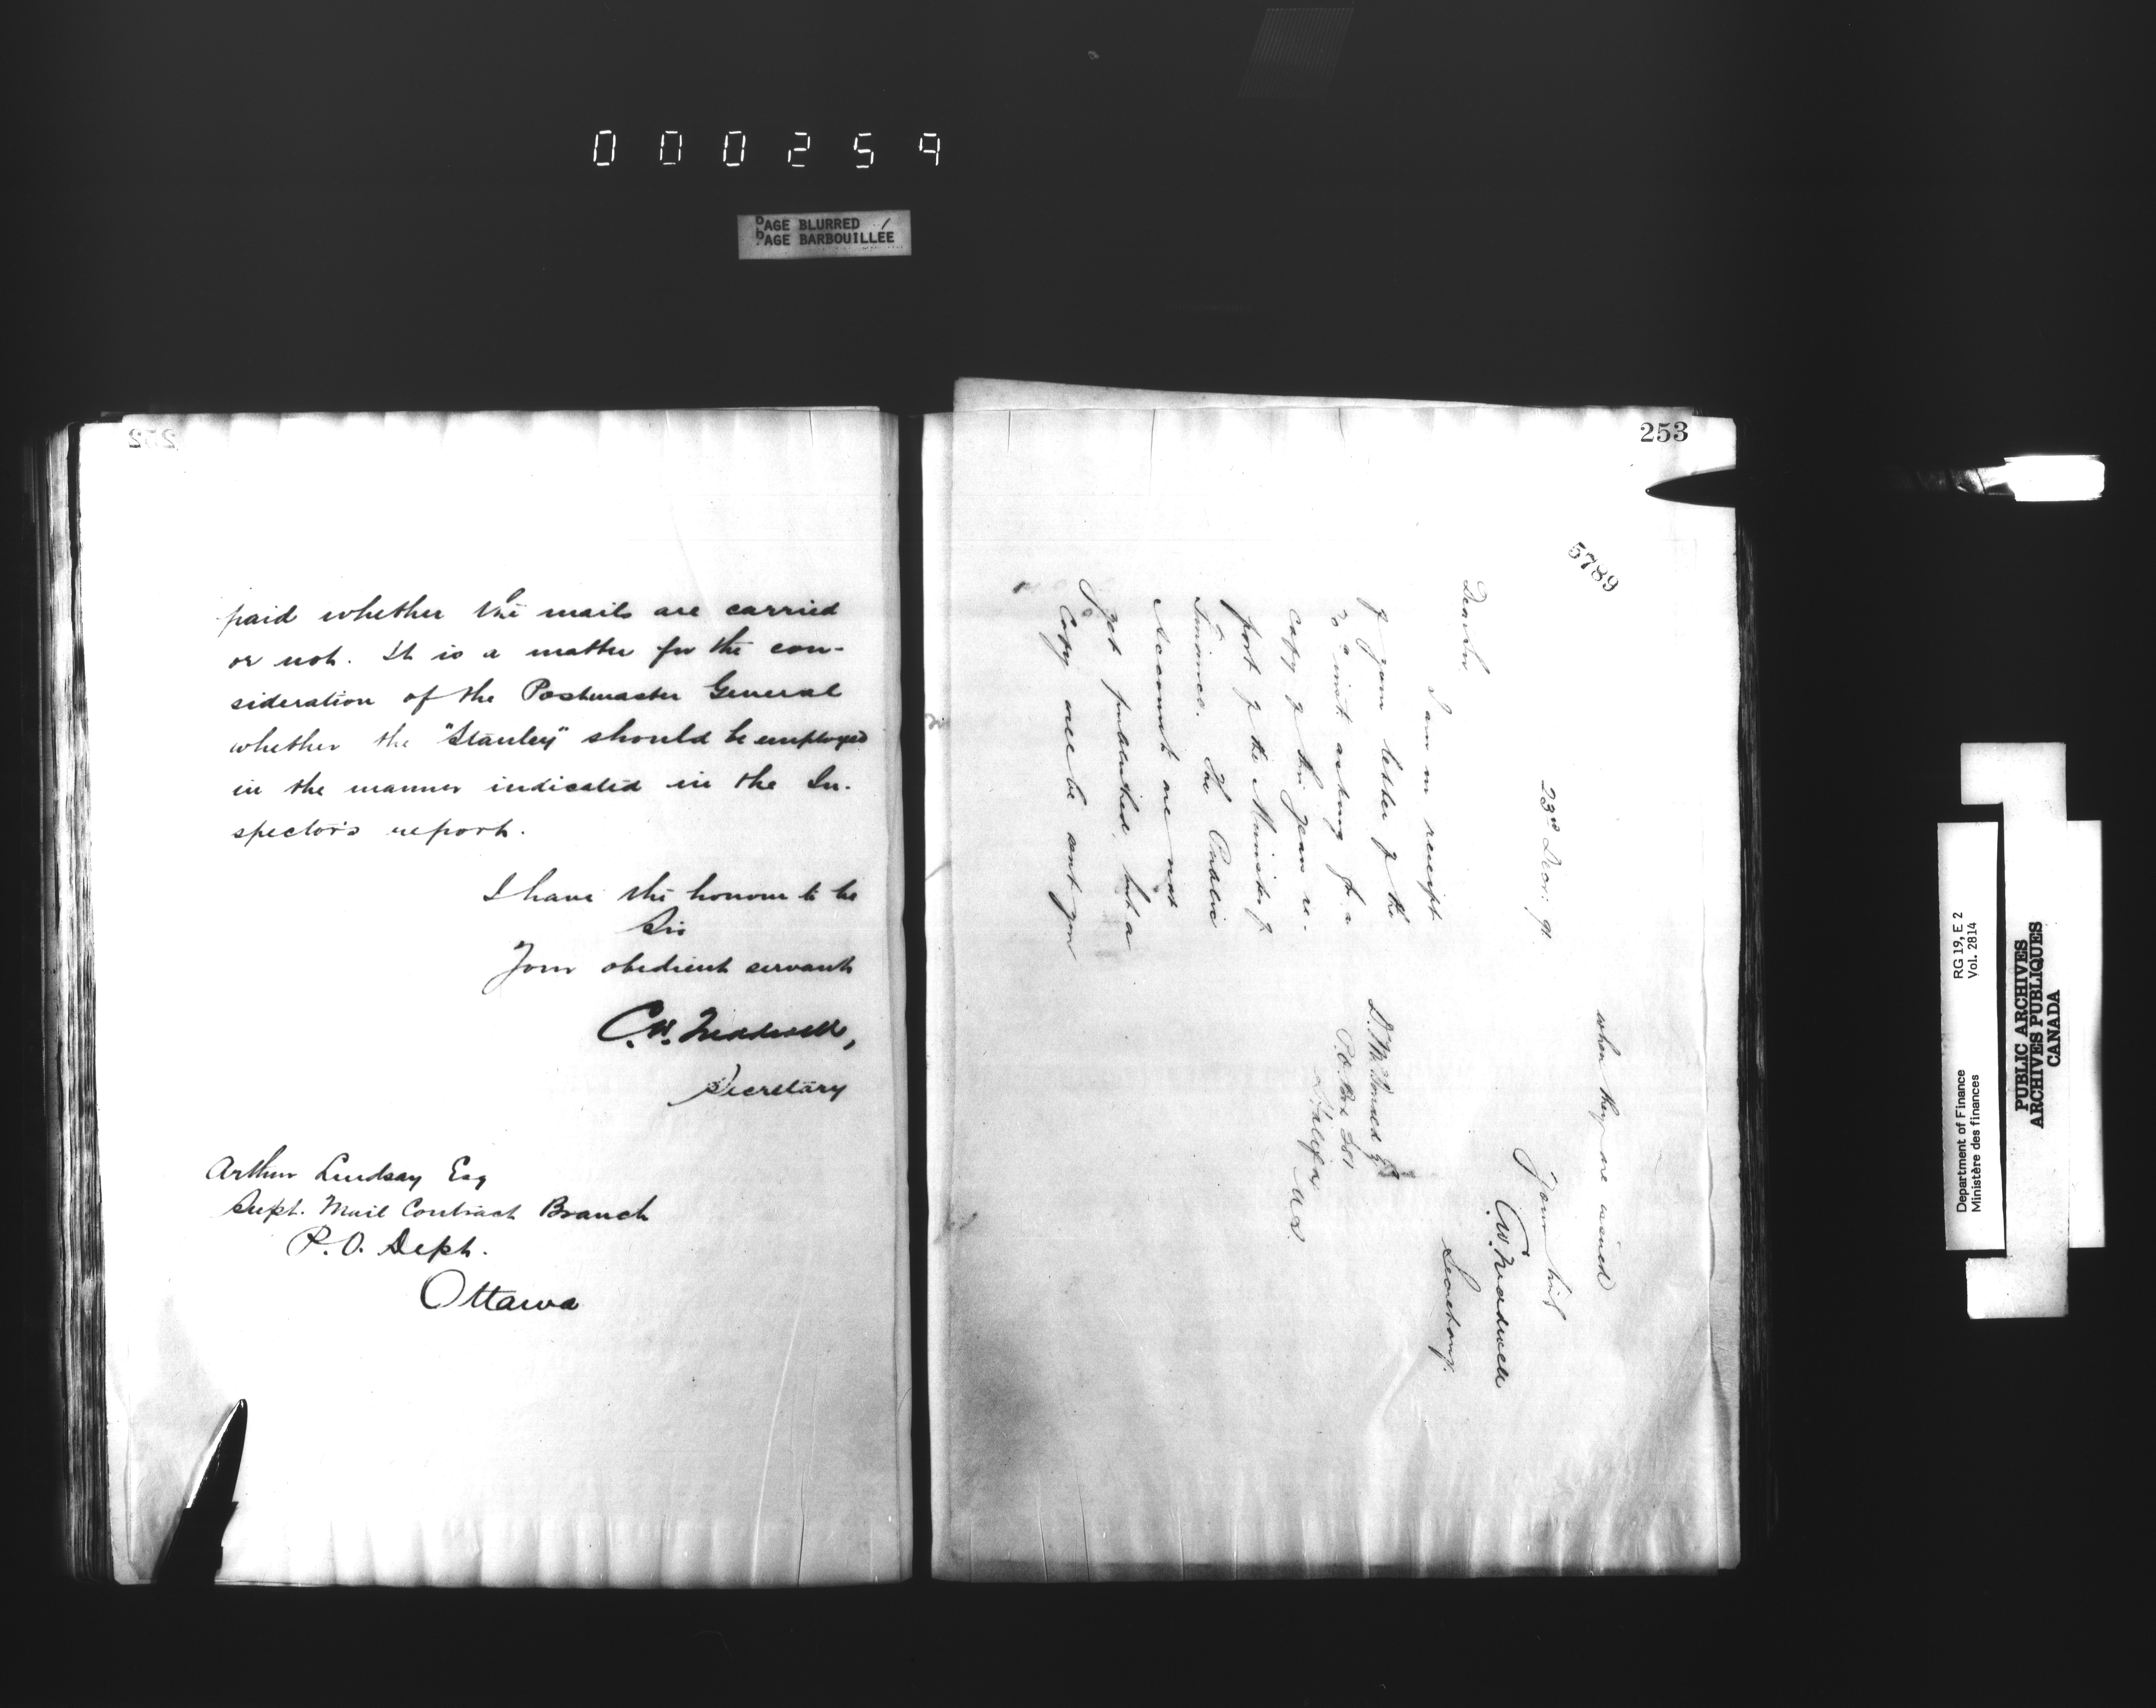 000259
PAGE BLURRED
PAGE BARBOUILLÉE
252
paid whether the mails are carried
or not. It is a matter for the con-
sideration of the Postmaster General
whether the "Stanley" should be employed
in the manner indicated in the In-
spector's report.
I have the honour to be
Sir
Your obedient servant
C.W. Treadwell,
Secretary
Arthur Lindsay Esq
Supt. Mail Contract Branch
P.O. Dept.
Ottawa
253
5789
23rd Decr. 91.
Dear Sir,
I am in receipt
of your letter of the
inst asking for a
copy of this years re-
port of the Minister of
Finance. The Public
Accounts are not
yet published, but a
Copy will be sent you
when they are issued
Yours truly
C.W. Treadwell
Secretary.
D. McDonald Esq
P.O. Box 281
Halifax
N.S.
RG 19, E 2
Vol. 2814
Department of Finance
Ministère des finances
PUBLIC ARCHIVES
ARCHIVES PUBLIQUES
CANADA